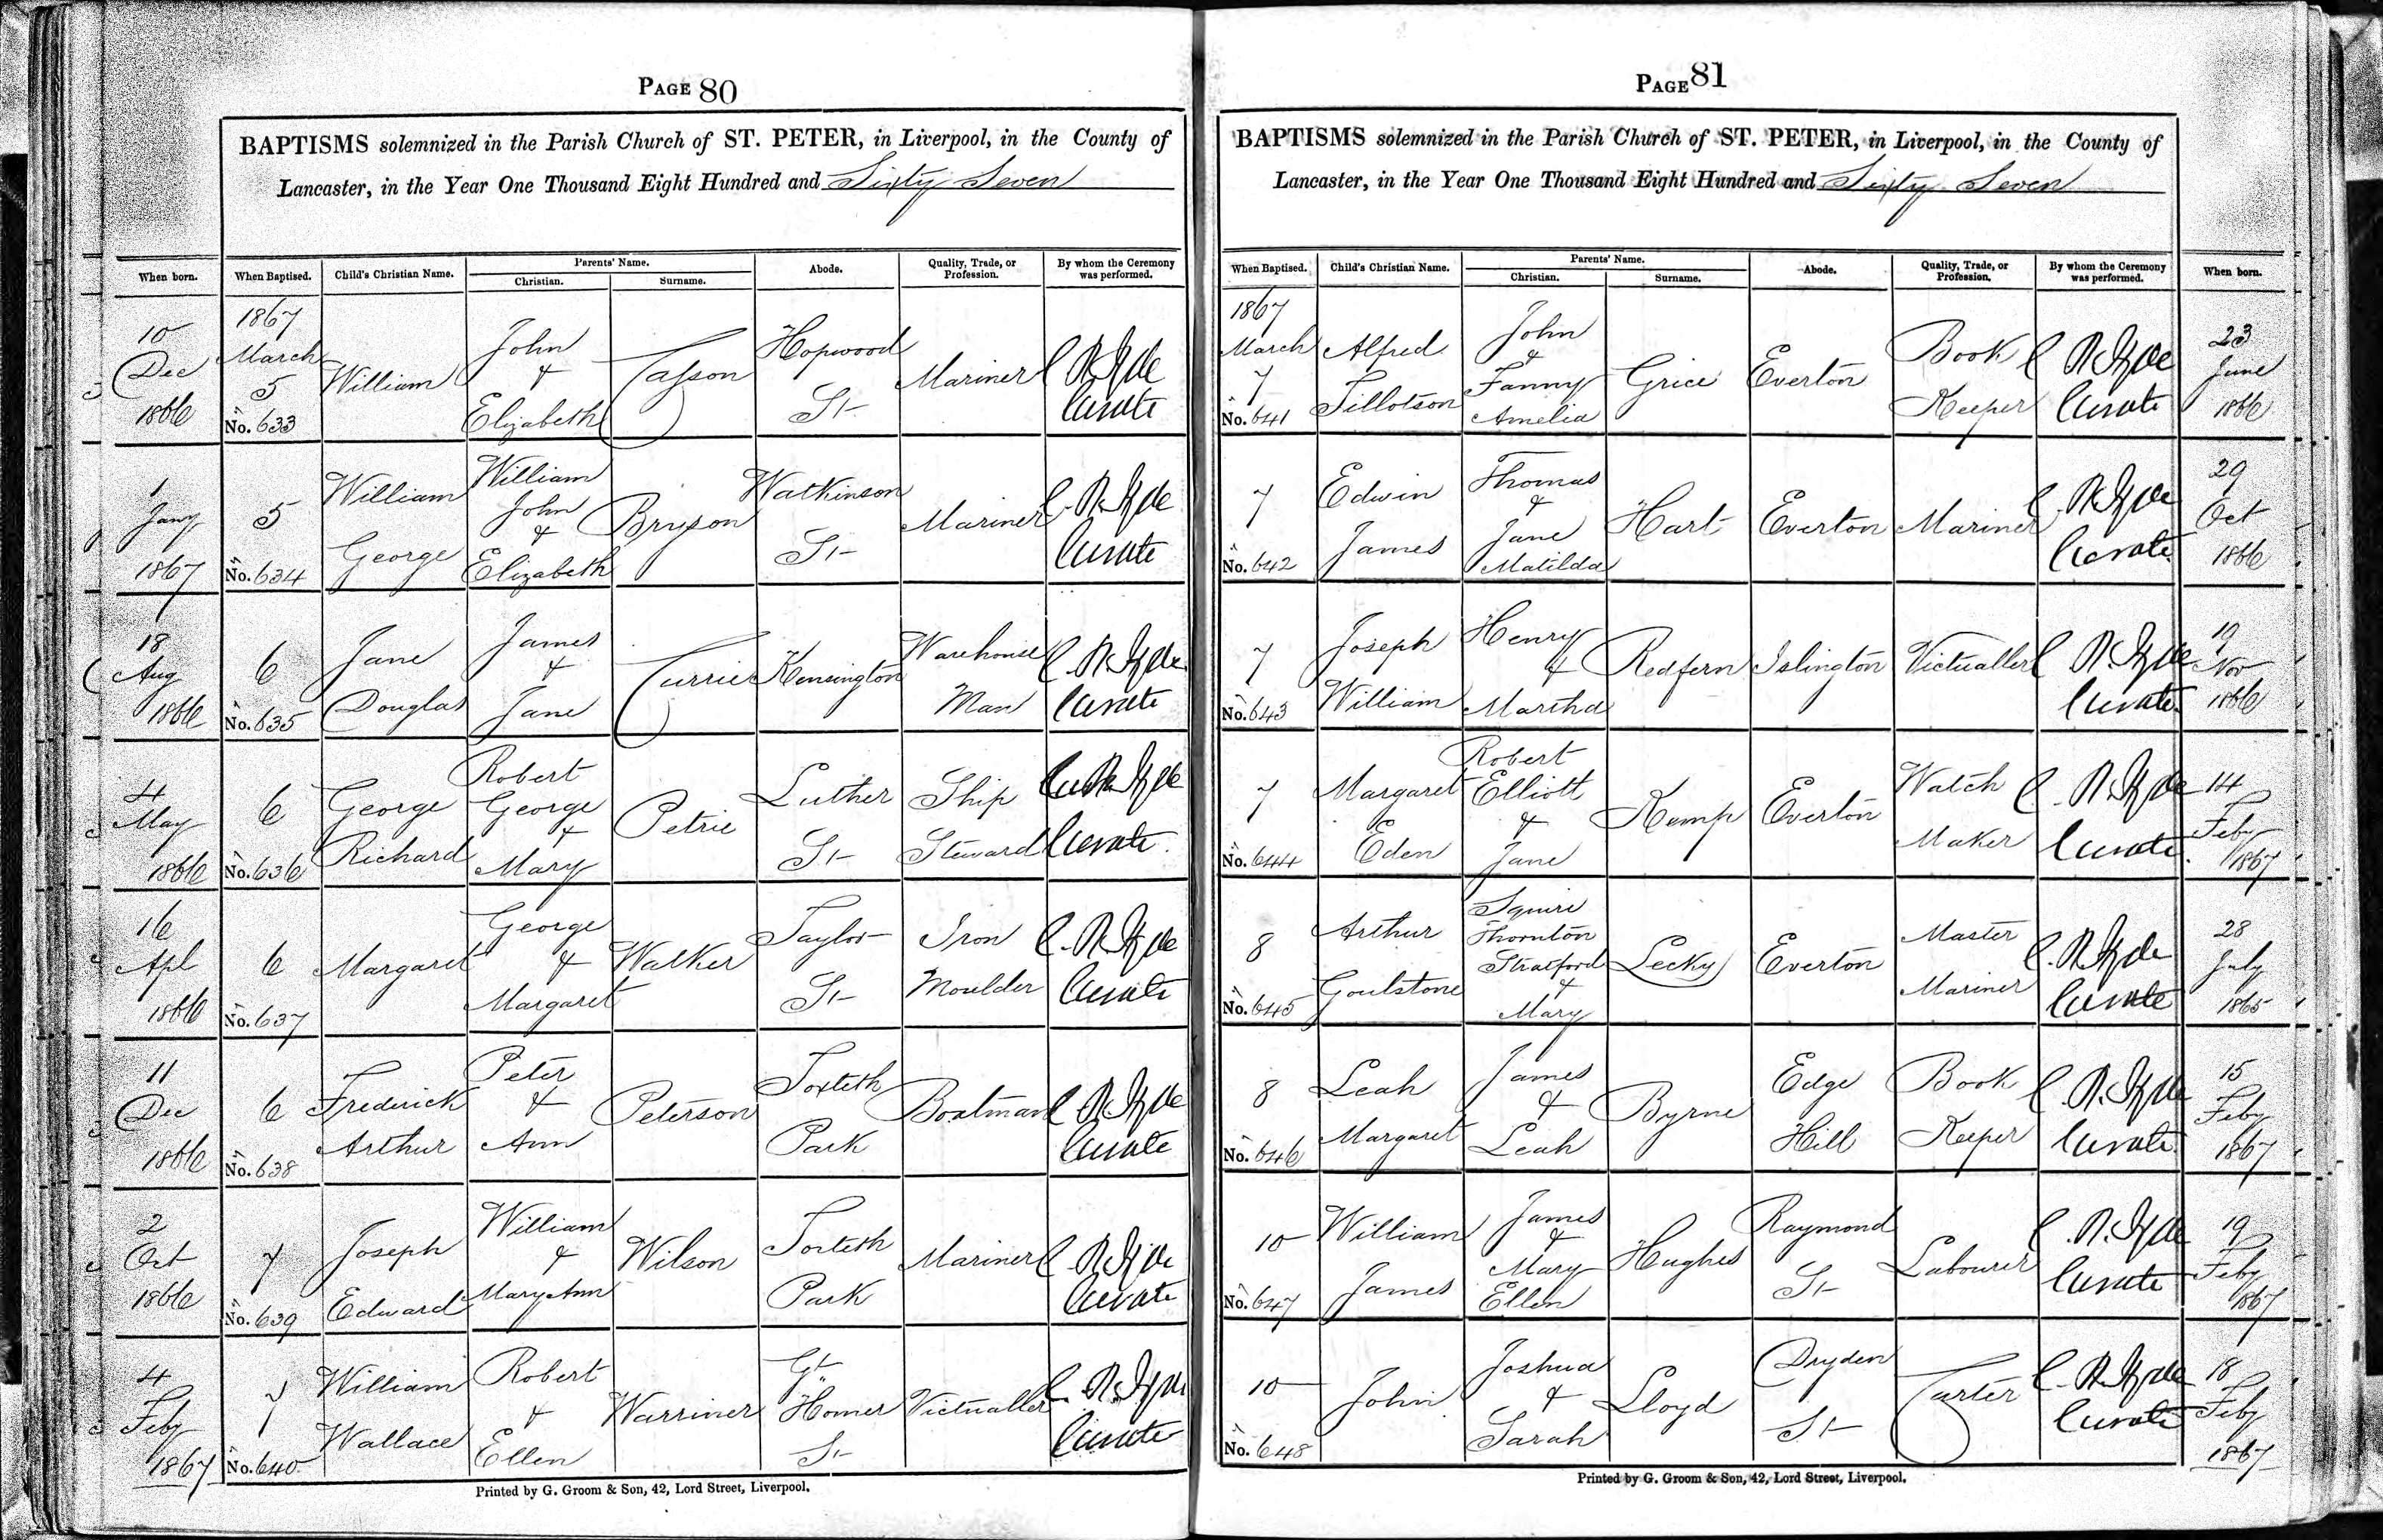 PAGE 80
BAPTISMS solemnized in the Parish Church of ST. PETER, in Liverpool, in the County of
Lancaster, in the Year One Thousand Eight Hundred and Sixty Seven
When born. When Baptised. Child's Christian Name. Parents' Name. Christian. Surname. Abode. Quality, Trade, or Profession. By whom the Ceremony was performed.
10 Dec 1866 1867 March 5 No. 633 William John & Elizabeth Tasson Hopwood St Mariner C. R. Hyde Curate
1 Jany 1867 5 No. 634 William George William John & Elizabeth Bryson Watkinson St Mariner C. R. Hyde Curate
18 Aug 1866 6 No. 635 Jane Douglas James & Jane Currie Kensington Warehouse Man C. R. Hyde Curate
4 May 1866 6 No. 636 George Richard Robert George & Mary Petrie Luther St Ship Steward R. Hyde Curate
16 Apl 1866 6 No. 637 Margaret George & Margaret Walker Taylor St Iron Moulder C. R. Hyde Curate
11 Dec 1866 6 No. 638 Frederick Arthur Peter & Ann Peterson Toxteth Park Boatman C. R. Hyde Curate
2 Oct 1866 7 No. 639 Joseph Edward William & Mary Ann Wilson Toxteth Park Mariner C. R. Hyde Curate
4 Feby 1867 7 No. 640 William Wallace Robert & Ellen Warriner Gt Homer St Victualler C. R. Hyde Curate
Printed by G. Groom & Son, 42, Lord Street, Liverpool.
PAGE 81
BAPTISMS solemnized in the Parish Church of ST. PETER, in Liverpool, in the County of
Lancaster, in the Year One Thousand Eight Hundred and Sixty Seven
When Baptised. Child's Christian Name. Parents' Name. Christian. Surname. Abode. Quality, Trade, or Profession. By whom the Ceremony was performed. When born.
1867 March 7 No. 641 Alfred Tillotson John & Fanny Amelia Grice Everton Book Keeper C. R. Hyde Curate 23 June 1866
7 No. 642 Edwin James Thomas & Jane Matilda Hart Everton Mariner C. R. Hyde Curate 29 Oct 1866
7 No. 643 Joseph William Henry & Martha Redfern Islington Victualler C. R. Hyde Curate 19 Nov 1866
7 No. 644 Margaret Eden Robert Elliott & Jane Kemp Everton Watch Maker C. R. Hyde Curate 14 Feby 1867
8 No. 645 Arthur Goulstone Squire Thornton Stratford & Mary Lecky Everton Master Mariner C. R. Hyde Curate 28 July 1865
8 No. 646 Leah Margaret James & Leah Byrne Edge Hill Book Keeper C. R. Hyde Curate 15 Feby 1867
10 No. 647 William James James & Mary Ellen Hughes Raymond St Labourer C. R. Hyde Curate 19 Feby 1867
10 No. 648 John Joshua & Sarah Lloyd Dryden St Carter C. R. Hyde Curate 18 Feby 1867
Printed by G. Groom & Son, 42, Lord Street, Liverpool.